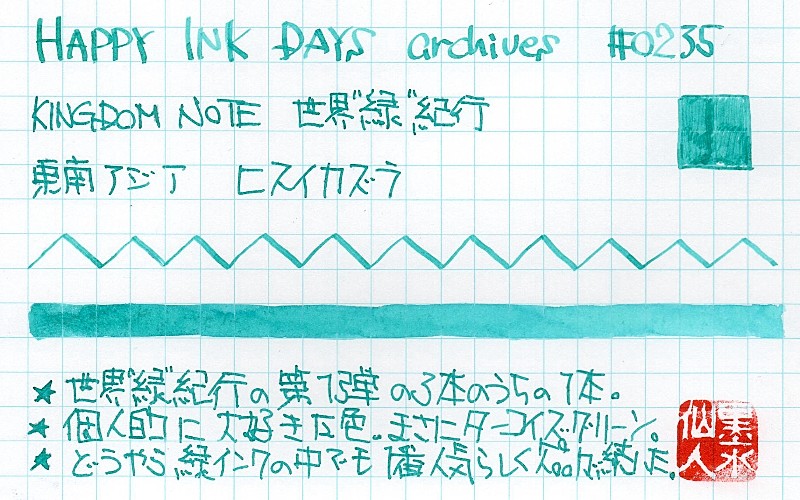 HAPPY INK DAYS archives #0235
KINGDOM NOTE 世界"緑"紀行
東南アジア ヒスイカズラ
★ 世界"緑"紀行の第13弾の3本のうちの1本。
★ 個人的に大好きな色。まさにターコイズグリーン。
★ どうやら緑インクの中でも1番人気らしく欠品が続いた。
墨水
仙人